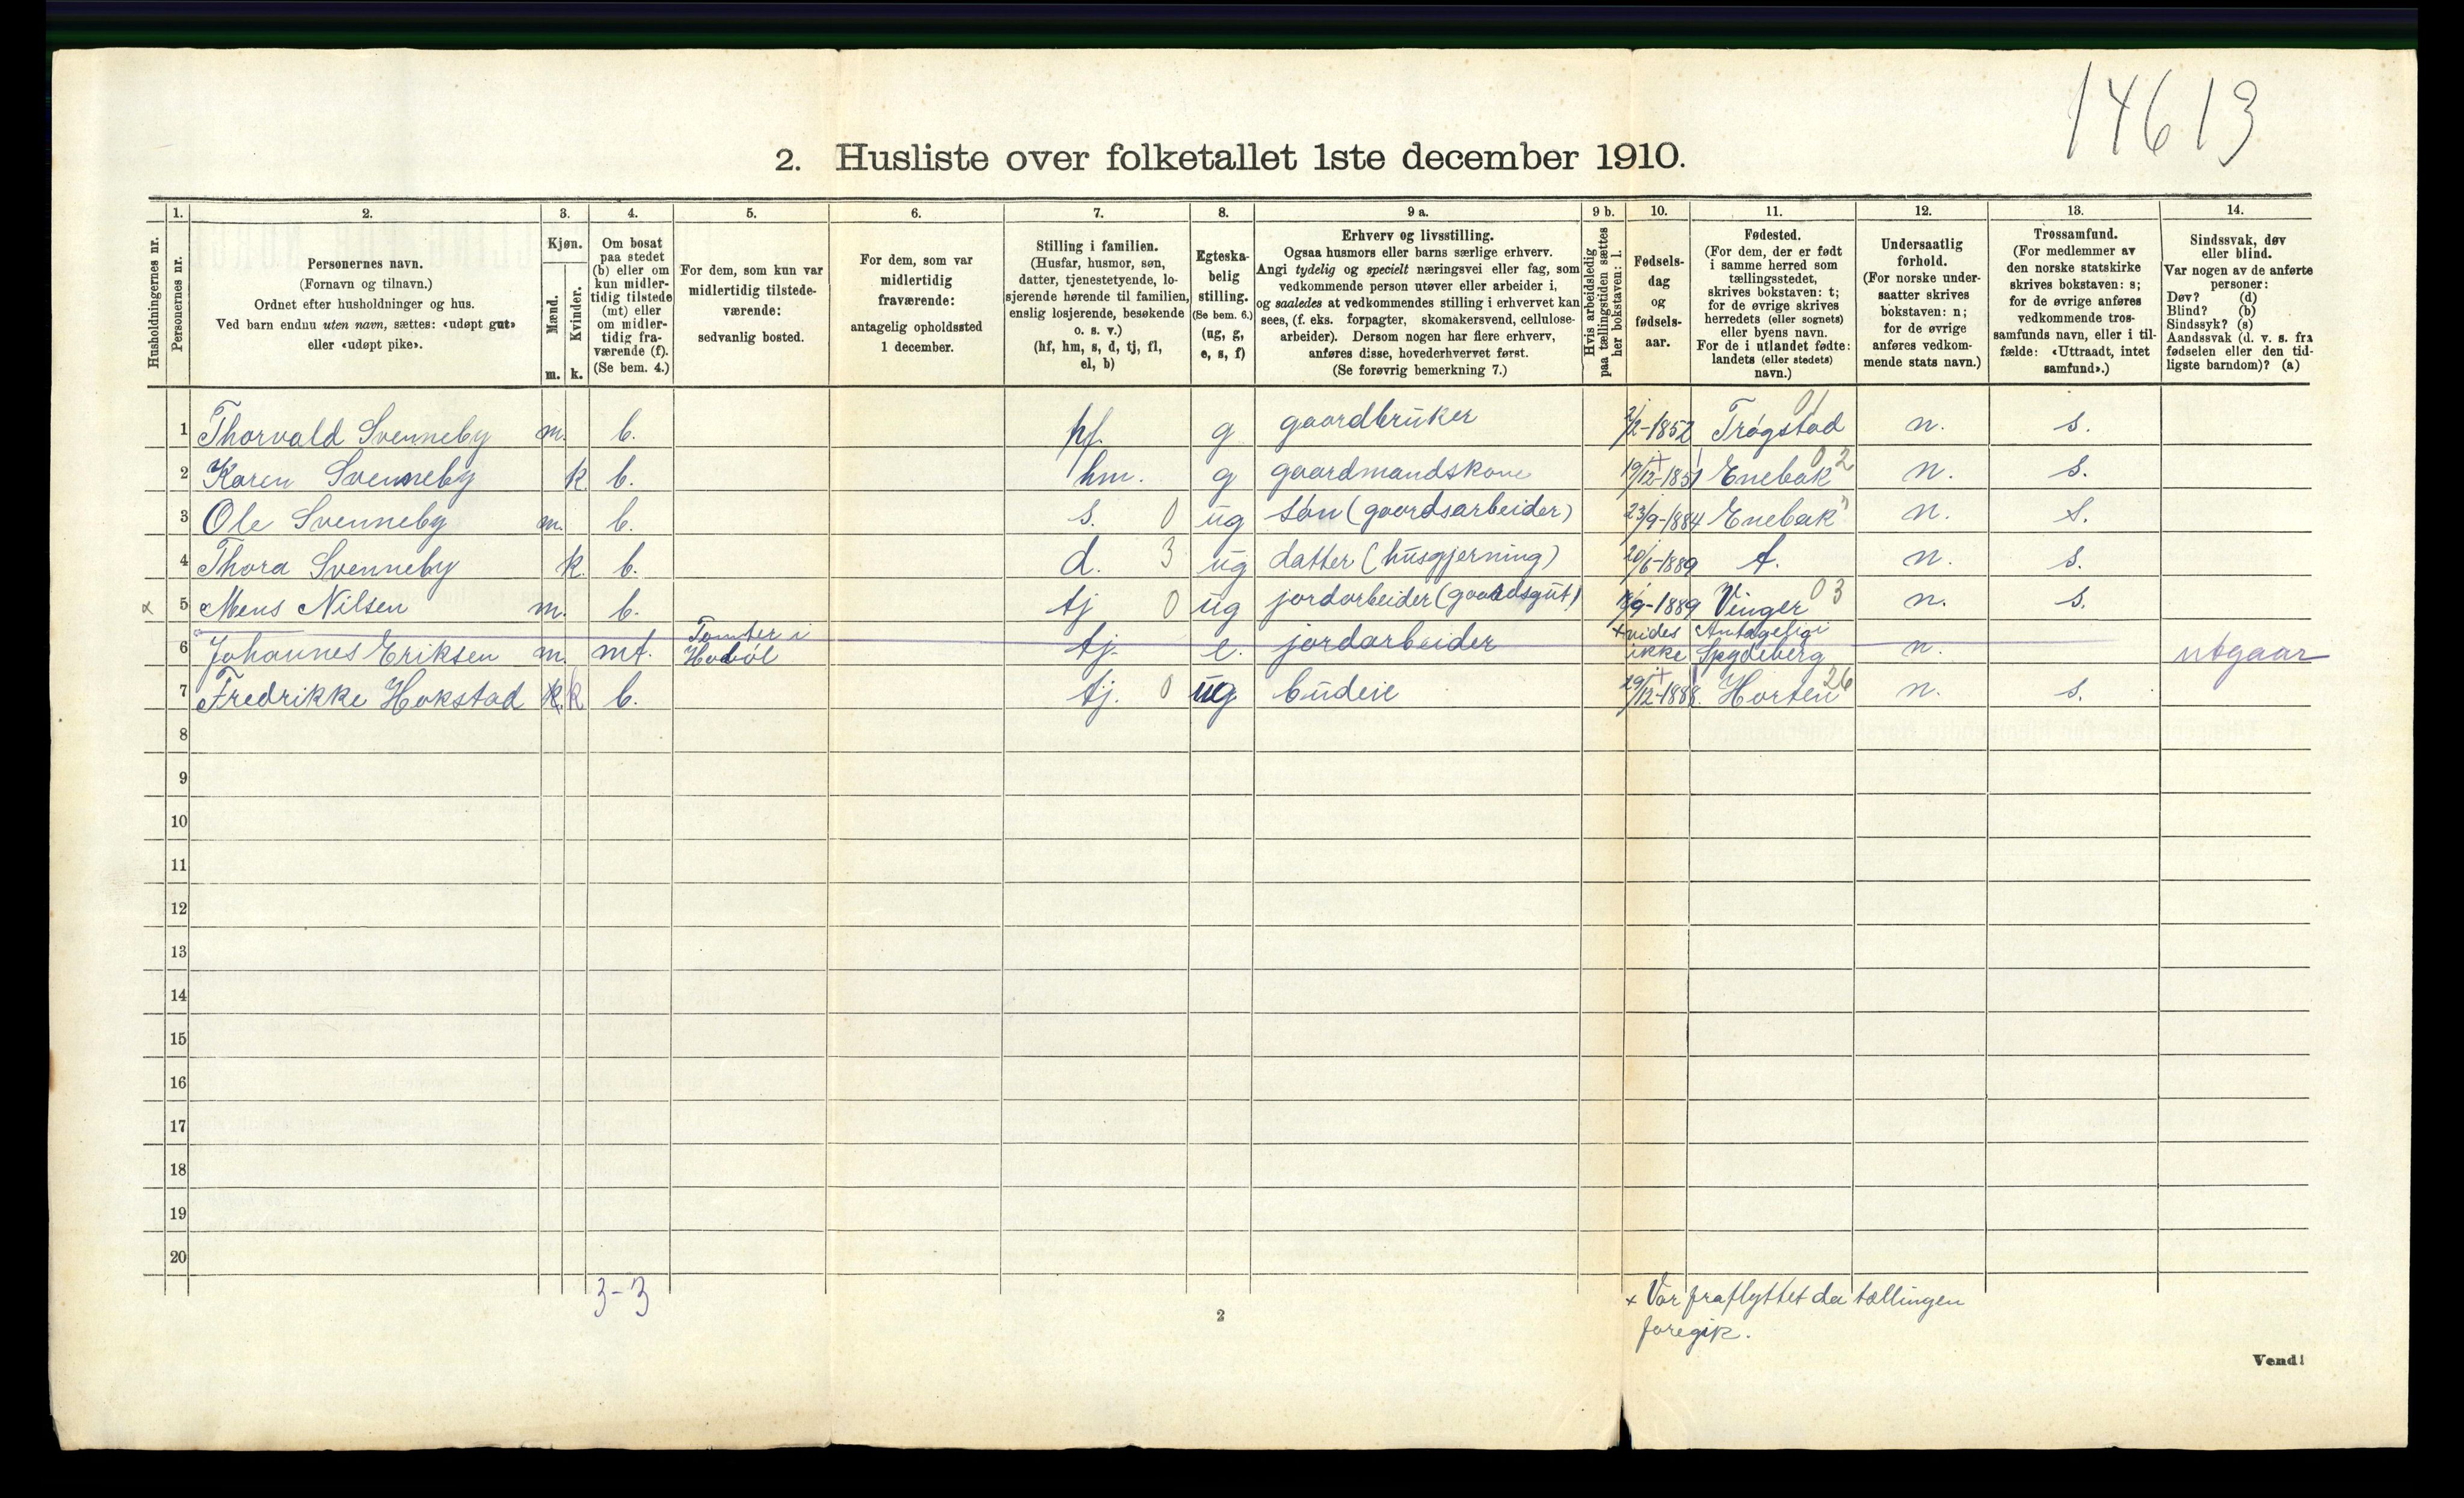 14613
2. Husliste over folketallet 1ste december 1910.
1. 2. 3. 4. 5. 6. 7. 8. 9 a. 9 b. 10. 11. 12. 13. 14.
Husholdningernes nr.
Personernes nr.
Personernes navn.
(Fornavn og tilnavn.)
Ordnet efter husholdninger og hus.
Ved barn endnu uten navn, sættes: «udøpt gut»
eller «udøpt pike».
Kjøn.
Mænd.
Kvinder.
m. k.
Om bosat
paa stedet
(b) eller om
kun midler-
tidig tilstede
(mt) eller
om midler-
tidig fra-
værende (f).
(Se bem. 4.)
For dem, som kun var
midlertidig tilstede-
værende:
sedvanlig bosted.
For dem, som var
midlertidig
fraværende:
antagelig opholdssted
1 december.
Stilling i familien.
(Husfar, husmor, søn,
datter, tjenestetyende, lo-
sjerende hørende til familien,
enslig losjerende, besøkende
o. s. v.)
(hf, hm, s, d, tj, fl,
el, b)
Egteska-
belig
stilling.
(Se bem. 6.)
(ug, g,
e, s, f)
Erhverv og livsstilling.
Ogsaa husmors eller barns særlige erhverv.
Angi tydelig og specielt næringsvei eller fag, som
vedkommende person utøver eller arbeider i,
og saaledes at vedkommendes stilling i erhvervet kan
sees, (f. eks. forpagter, skomakersvend, cellulose-
arbeider). Dersom nogen har flere erhverv,
anføres disse, hovederhvervet først.
(Se forøvrig bemerkning 7.)
Hvis arbeidsledig
paa tællingstiden sættes
her bokstaven: l.
Fødsels-
dag
og
fødsels-
aar.
Fødested.
(For dem, der er født
i samme herred som
tællingsstedet,
skrives bokstaven: t;
for de øvrige skrives
herredets (eller sognets)
eller byens navn.
For de i utlandet fødte:
landets (eller stedets)
navn.)
Undersaatlig
forhold.
(For norske under-
saatter skrives
bokstaven: n;
for de øvrige
anføres vedkom-
mende stats navn.)
Trossamfund.
(For medlemmer av
den norske statskirke
skrives bokstaven: s;
for de øvrige anføres
vedkommende tros-
samfunds navn, eller i til-
fælde: «Uttraadt, intet
samfund».)
Sindssvak, døv
eller blind.
Var nogen av de anførte
personer:
Døv? (d)
Blind? (b)
Sindssyk? (s)
Aandssvak (d. v. s. fra
fødselen eller den tid-
ligste barndom)? (a)
1 Thorvald Svenneby m. b. hf. g gaardbruker 2/2-1852 Trøgstad 01 n. s.
2 Karen Svenneby k b. hm. g gaardmandskone 19/12-1851 Enebak 02 n. s.
3 Ole Svenneby m. b. s. 0 ug søn (gaardsarbeider) 23/9-1884 Enebak " n. s.
4 Thora Svenneby k. b. d. 3 ug datter (husgjerning) 20/6-1889 t. n. s.
5 Mens Nilsen m. b. tj 0 ug jordarbeider (gaardsgut) 18/9-1889 Vinger 03 n. s.
Tomter i + vides Antagelig i
6 Johannes Eriksen m. mt. Hobøl tj. e. jordarbeider ikke Spydeberg n. utgaar
7 Fredrikke Hokstad k. k b. tj. 0 ug budeie 29/12-1888. Horten 26 n. s.
8
9
10
11
12
13
14
15
16
17
18
19
20
3-3
+ Var fraflyttet da tællingen
foregik.
2
Vend!